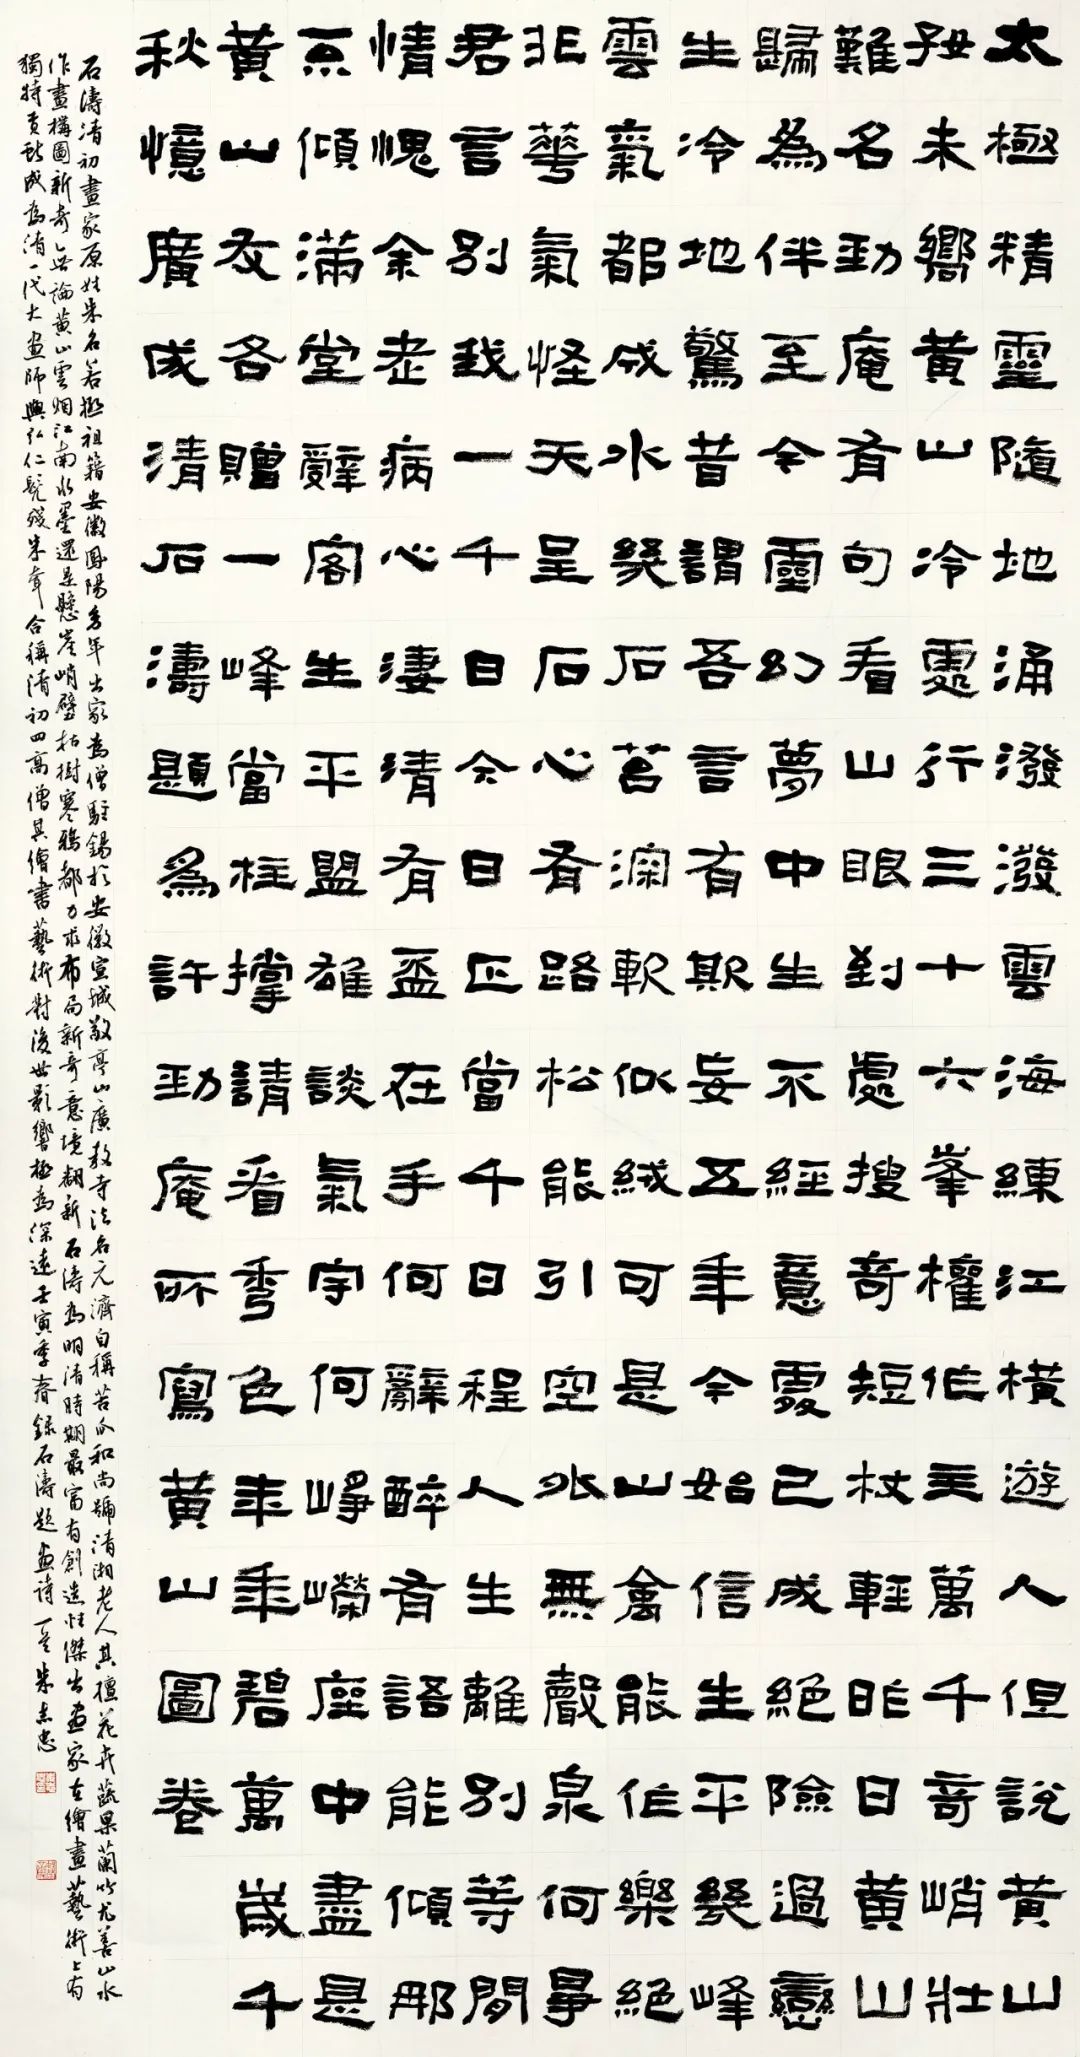 太極精靈隨地涌潑潑雲海練江橫遊人但說黃山
好未嚮黃山冷處行三十六峯權作主萬千奇峭壯
難名勁庵有句看山眼到處搜奇短杖輕昨日黃山
歸為伴至今靈幻夢中生不經意處已成絕險過巒
生冷地驚昔謂吾言有欺妄五年今始信生平幾峰
雲氣都成水幾石苔深軟似絨可是山禽能作樂絕
非華氣怪天呈石心有路松能引空外無聲泉何事
君言別我一千日今日正當千日程人生離別等閒
情愧余老病心淒清有盃在手何辭醉有語能傾那
不傾滿堂辭客生平盟雄談氣宇何崢嶸座中盡是
黃山友各贈一峰當柱撐請看秀色年年碧萬歲千
秋憶廣成清石濤題為許勁庵所寫黃山圖卷
石濤清初畫家原姓朱名若極祖籍安徽鳳陽多年出家為僧駐錫於安徽宣城敬亭山廣教寺法名元濟自稱苦瓜和尚號清湘老人其擅花卉蔬果蘭竹尤善山水
作畫構圖新奇無論黃山雲烟江南水墨還是懸崖峭壁枯樹寒鴉都力求布局新奇意境翻新石濤為明清時期最富有創造性傑出畫家在繪畫藝術上有
獨特貢獻成為清一代大畫師與弘仁髡殘朱耷合稱清初四高僧其繪書藝術對後世影響極為深遠壬寅季春錄石濤題畫詩朱志忠